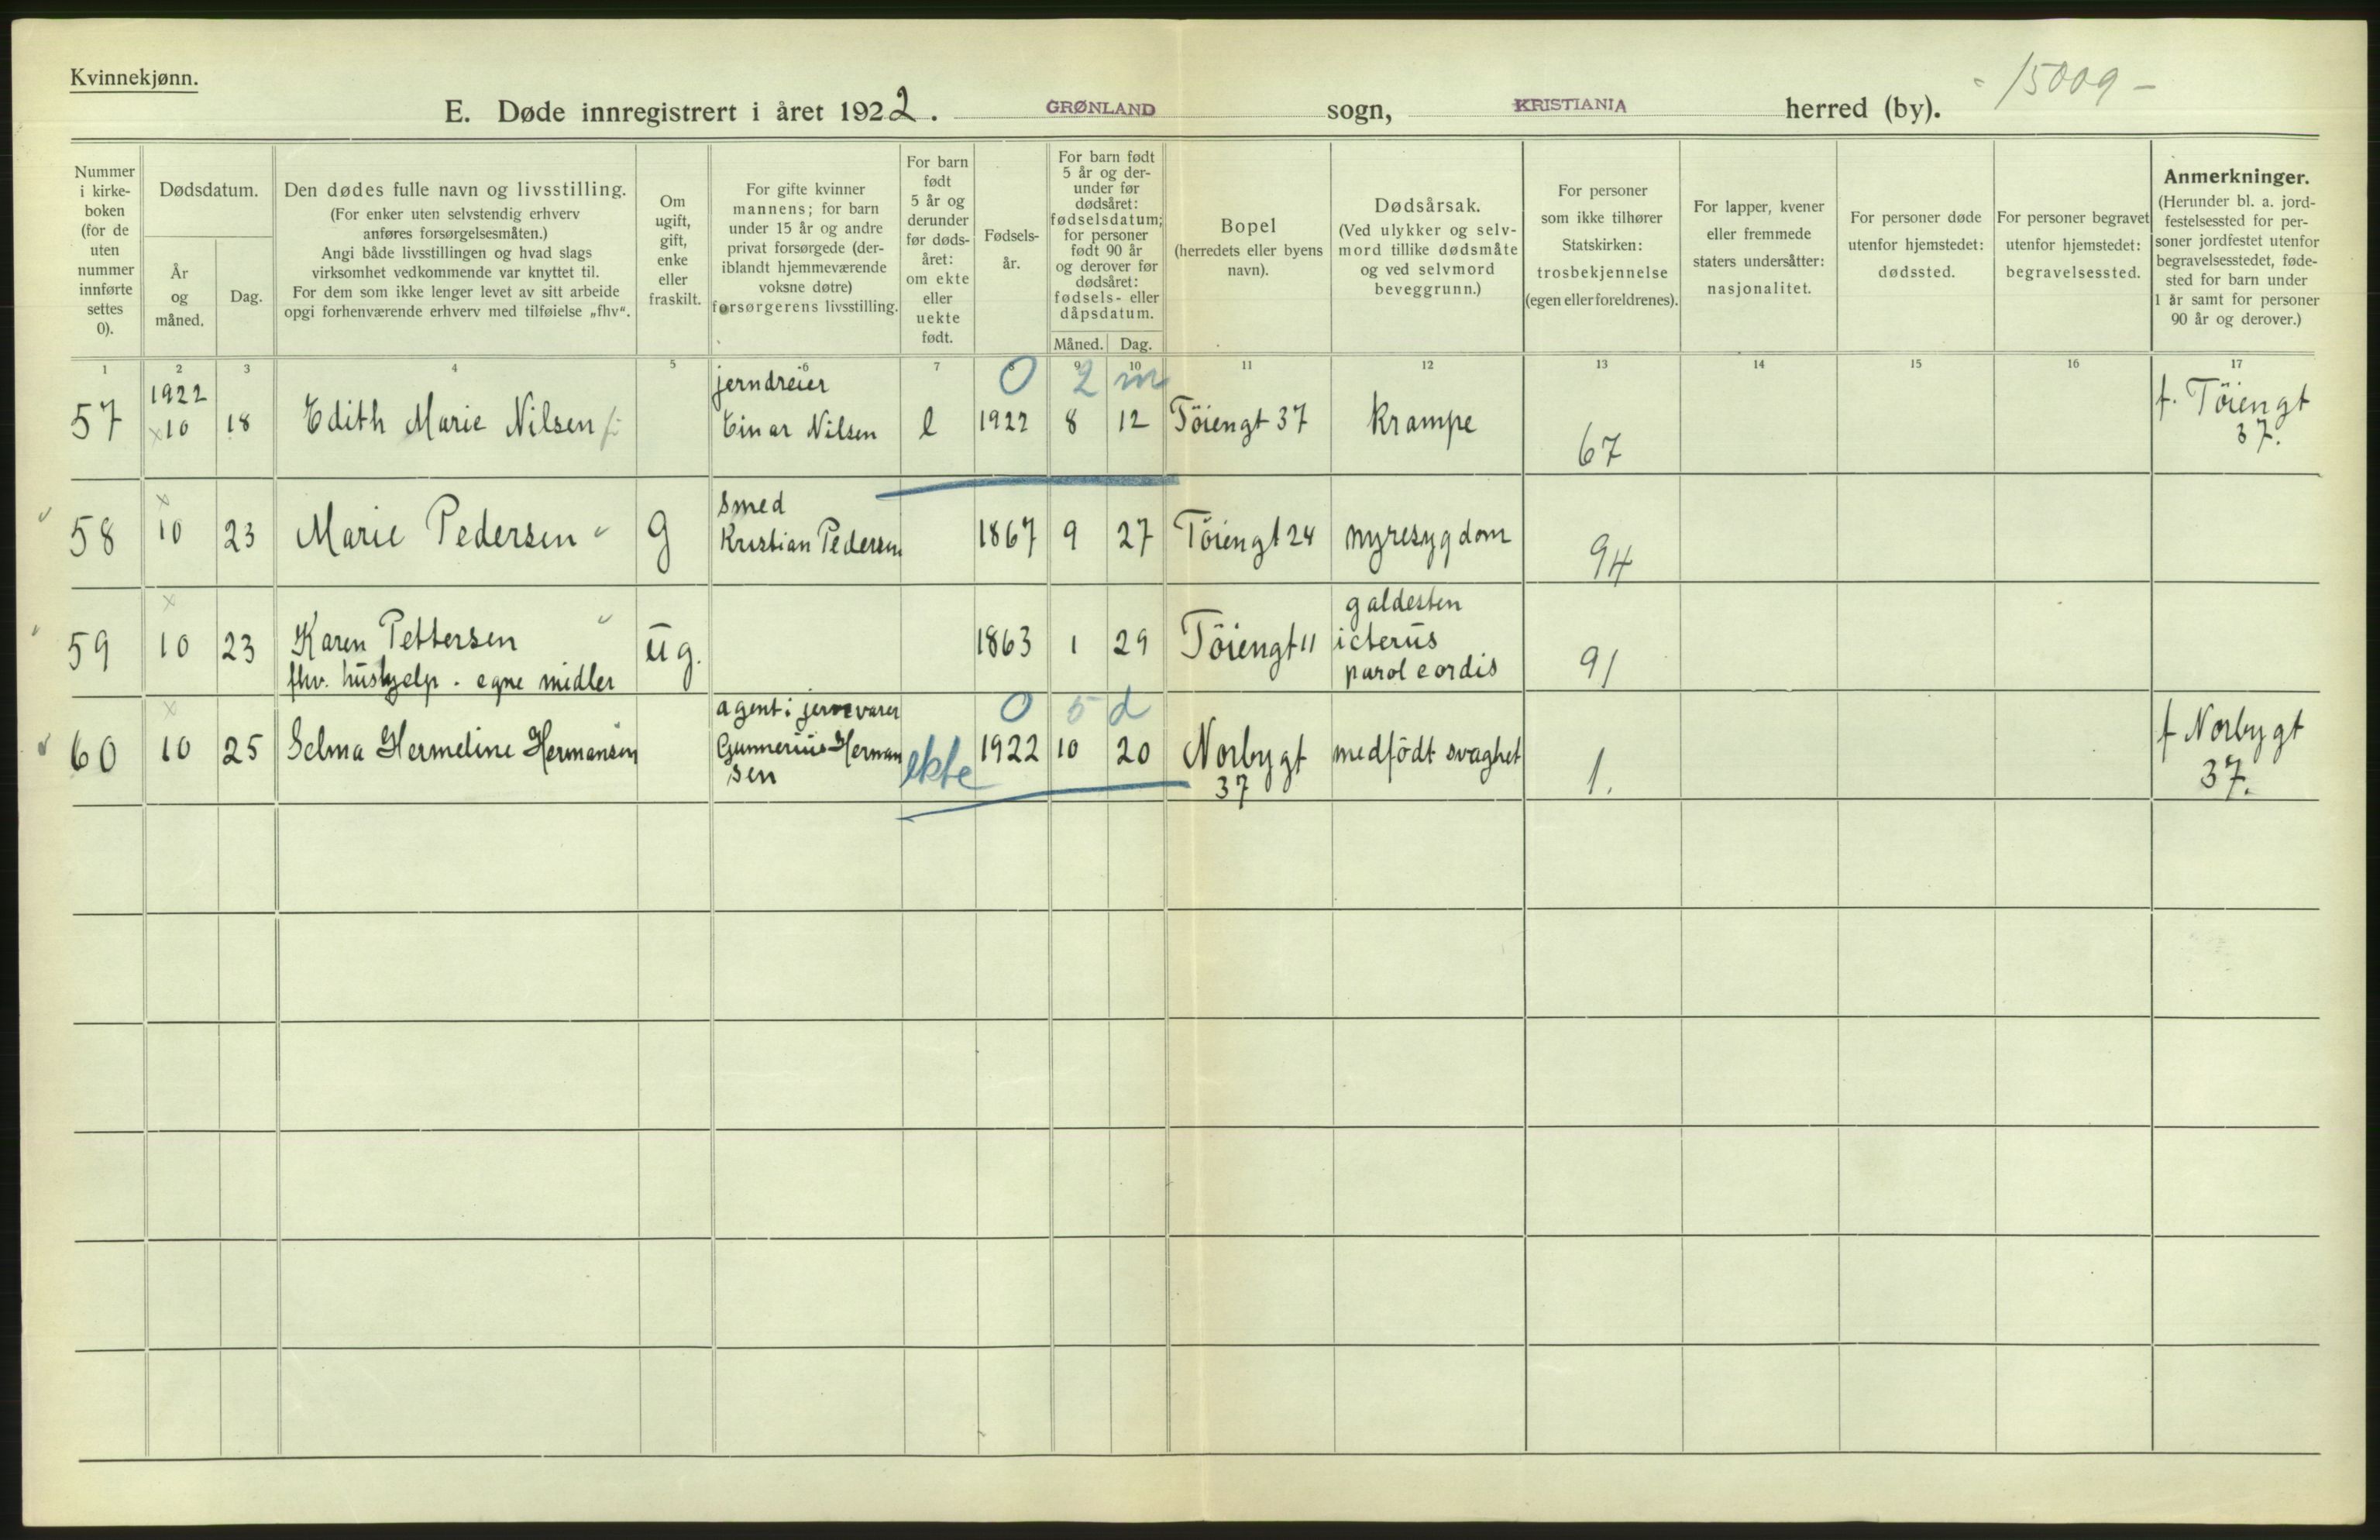 Kvinnekjønn.
- 15009 -
E. Døde innregistrert i året 1922. GRØNLAND sogn, KRISTIANIA herred (by).
Nummer
i kirke-
boken
(for de
uten
nummer
innførte
settes
0).
Dødsdatum.
År
og
måned.
Dag.
Den dødes fulle navn og livsstilling.
(For enker uten selvstendig erhverv
anføres forsørgelsesmåten.)
Angi både livsstillingen og hvad slags
virksomhet vedkommende var knyttet til.
For dem som ikke lenger levet av sitt arbeide
opgi forhenværende erhverv med tilføielse „fhv“.
Om
ugift,
gift,
enke
eller
fraskilt.
For gifte kvinner
mannens; for barn
under 15 år og andre
privat forsørgede (der-
iblandt hjemmeværende
voksne døtre)
forsørgerens livsstilling.
For barn
født
5 år og
derunder
før døds-
året:
om ekte
eller
uekte
født.
Fødsels-
år.
For barn født
5 år og der-
under før
dødsåret:
fødselsdatum;
for personer
født 90 år
og derover før
dødsåret:
fødsels- eller
dåpsdatum.
Måned. Dag.
Bopel
(herredets eller byens
navn).
Dødsårsak.
(Ved ulykker og selv-
mord tillike dødsmåte
og ved selvmord
beveggrunn.)
For personer
som ikke tilhører
Statskirken:
trosbekjennelse
(egen eller foreldrenes).
For lapper, kvener
eller fremmede
staters undersåtter:
nasjonalitet.
For personer døde
utenfor hjemstedet:
dødssted.
For personer begravet
utenfor hjemstedet:
begravelsessted.
Anmerkninger.
(Herunder bl. a. jord-
festelsessted for per-
soner jordfestet utenfor
begravelsesstedet, føde-
sted for barn under
1 år samt for personer
90 år og derover.)
1 2 3 4 5 6 7 8 9 10 11 12 13 14 15 16 17
1922 jerndreier 0 2 m f. Töiengt
57 x10 18 Edith Marie Nilsen Einar Nilsen e 1922 8 12 Töiengt 37 Krampe 67 37.
x smed
58 10 23 Marie Pedersen g Kristian Pedersen 1867 9 27 Töiengt 24 nyresygdom 94
x galdesten
59 10 23 Karen Pettersen ug. 1863 1 29 Töiengt 11 icterus 91
fhv. hushjelp. egne midler paral cordis
x agent i jernvarer 0 5 d f Norbygt
60 10 25 Selma Hermeline Hermansen Gunnerius Herman ekte 1922 10 20 Norbygt medfödt svaghet 1.
sen 37 37.